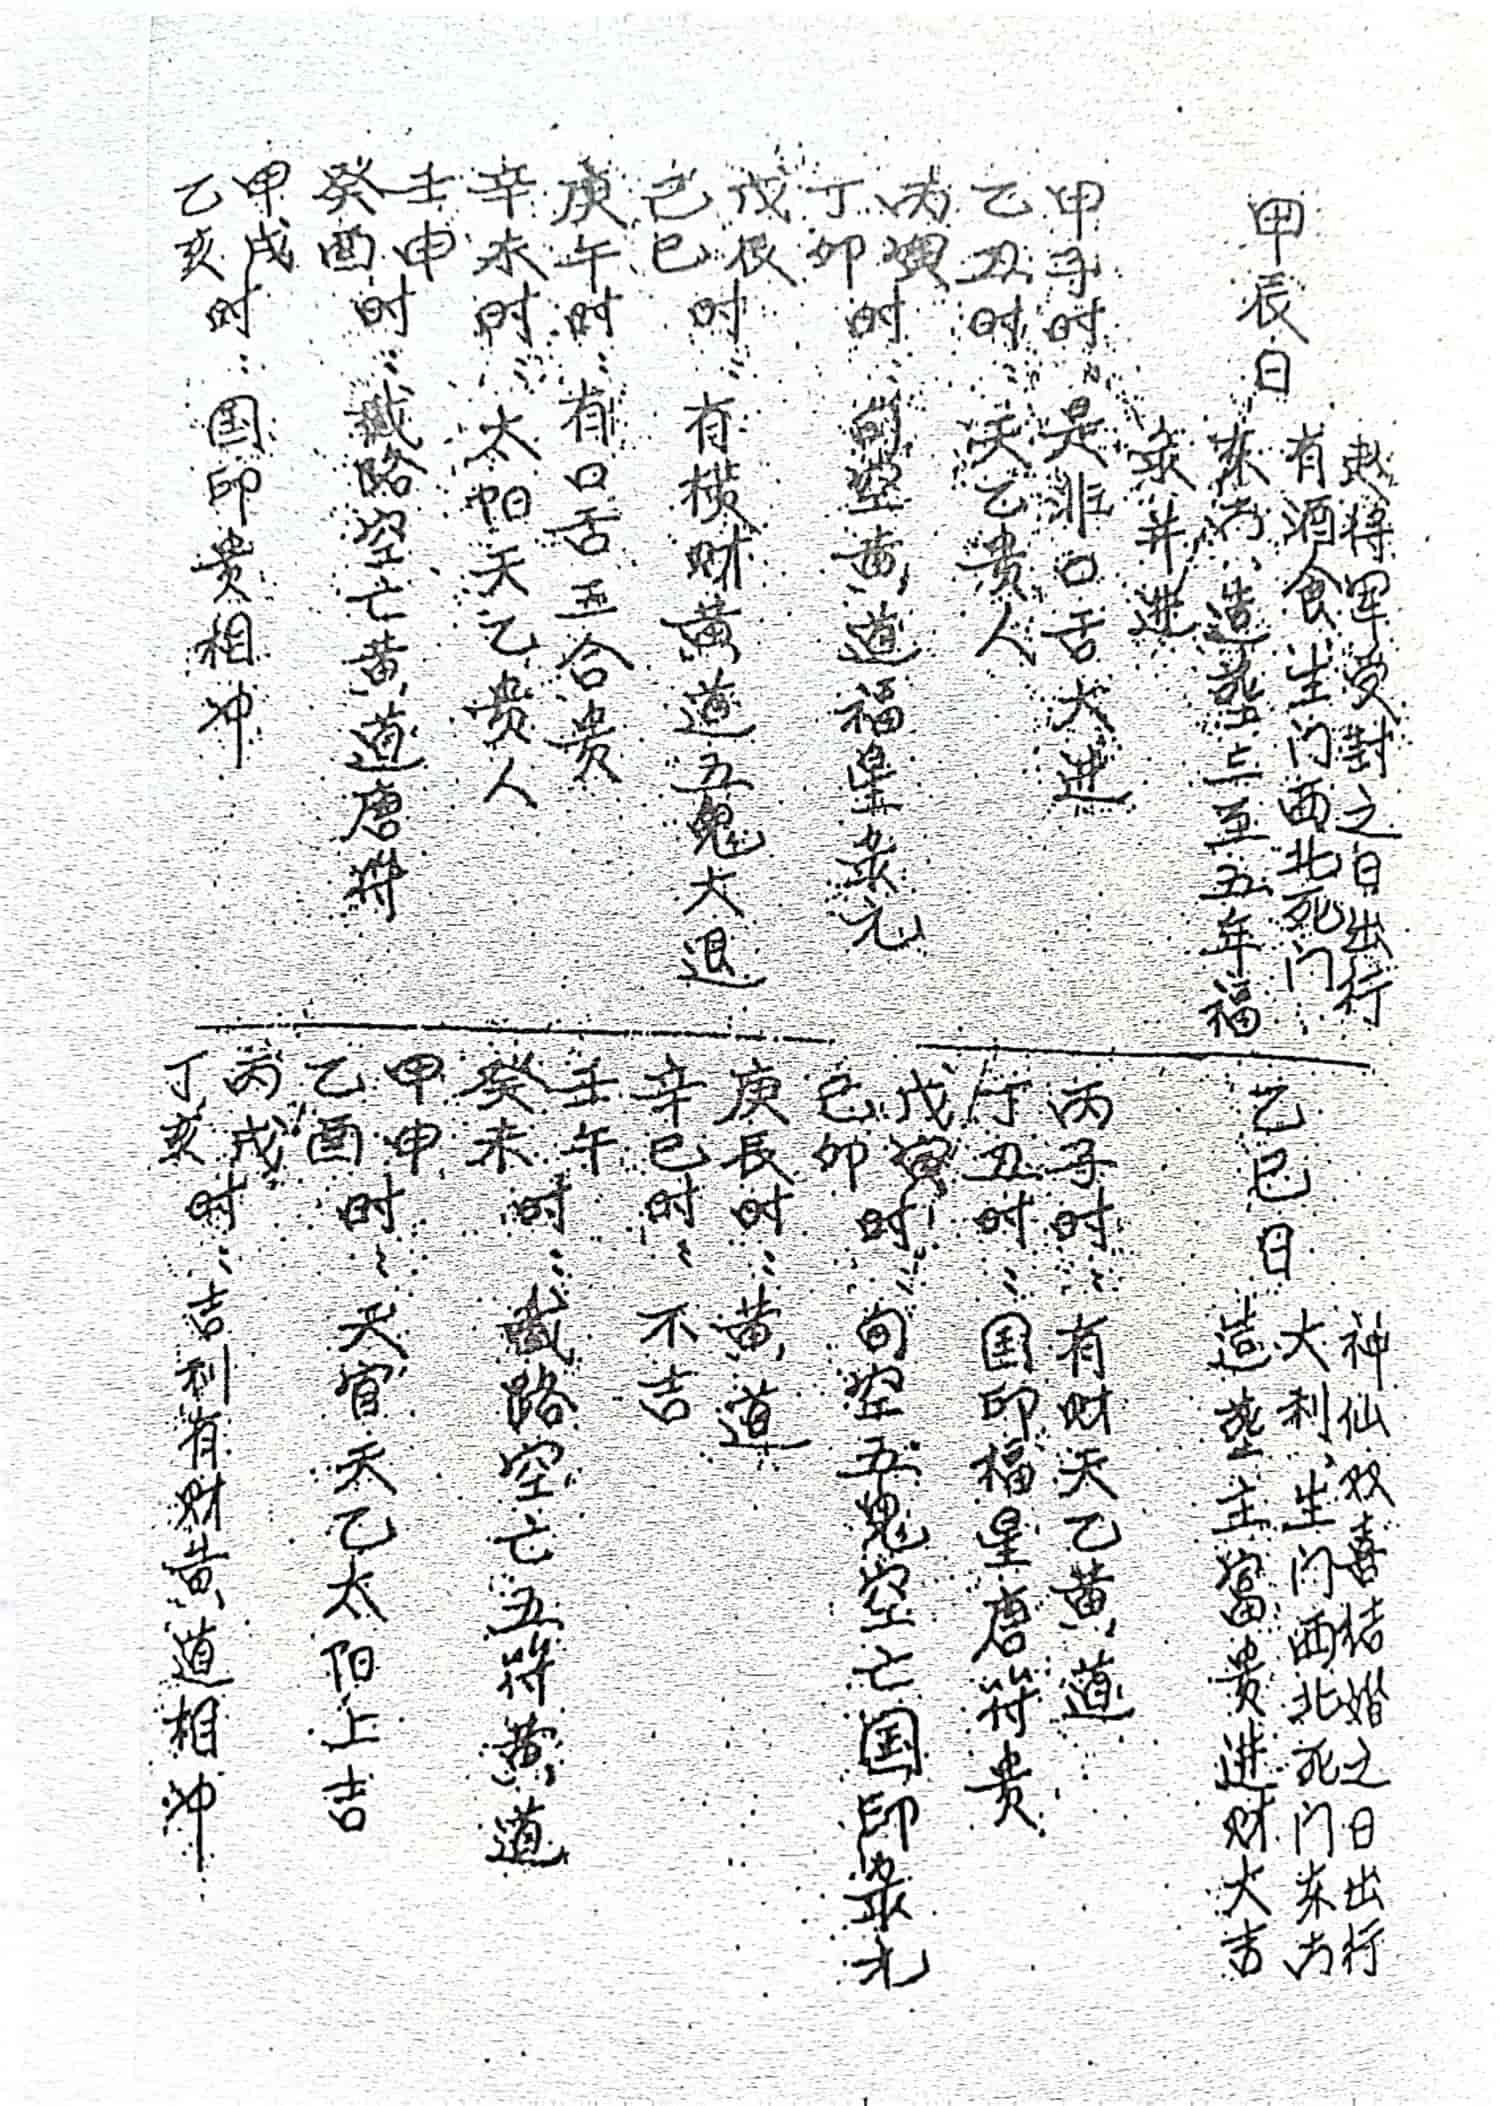 甲辰日
赵将军受封之日出行
有酒食生门西北死门
东南造葬三至五年福
录并进
甲子时：是非口舌大进
乙丑时：天乙贵人
丙寅
丁卯时：旬空黄道福星录元
戊辰
己巳时：有横财黄道五鬼大退
庚午时：有口舌五合贵
辛未时：太阳天乙贵人
壬申
癸酉时：截路空亡黄道唐符
甲戌
乙亥时：国印贵相冲
乙巳日
神仙双喜结婚之日出行
大利生门西北死门东南
造葬主富贵进财大吉
丙子时：有财天乙黄道
丁丑时：国印福星唐符贵
戊寅
己卯时：旬空五鬼空亡国印录元
庚辰时：黄道
辛巳时：不吉
壬午
癸未时：截路空亡五符黄道
甲申
乙酉时：天官天乙太阳上吉
丙戌
丁亥时：吉利有财黄道相冲